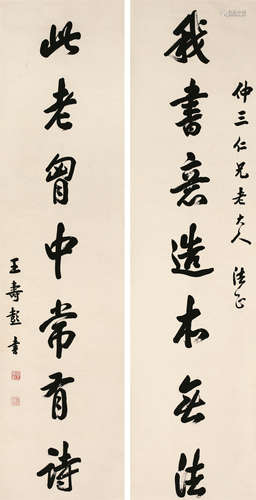 仲三仁兄老大人 法正
我書意造本無法
此老胸中常有詩
王壽彭書